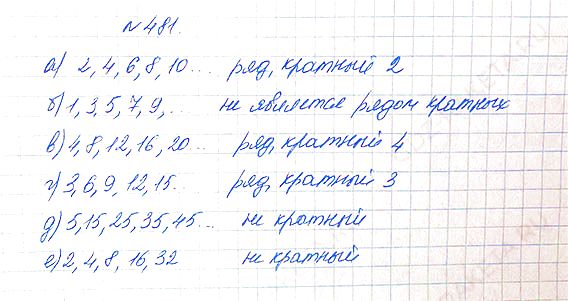 № 481.
а) 2, 4, 6, 8, 10.... ряд, кратный 2
б) 1, 3, 5, 7, 9, .. не является рядом кратных
в) 4, 8, 12, 16, 20... ряд, кратный 4
г) 3, 6, 9, 12, 15... ряд, кратный 3
д) 5, 15, 25, 35, 45... не кратный
е) 2, 4, 8, 16, 32 не кратный